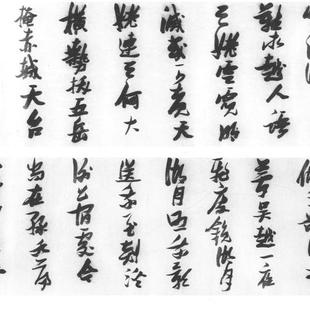 難求越人語
天姥雲霓明
滅或可覩天
姥連天向天
橫勢拔五岳
掩赤城天台
夢吳越一夜
飛度鏡湖月
湖月照我影
送我至剡溪
謝公宿處今
尚在淥水蕩